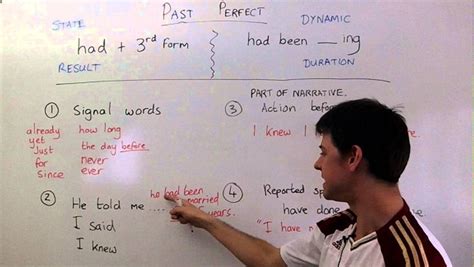 PAST PERFECT
STATE
DYNAMIC
had + 3rd form
had been __ ing
RESULT
DURATION
① Signal words
already how long
yet
just the day before
for never
since ever
② He told me ....
he had been
married
years.
I said
I knew
PART OF NARRATIVE.
③ Action before
I knew I
④ Reported sp
have done
"I have